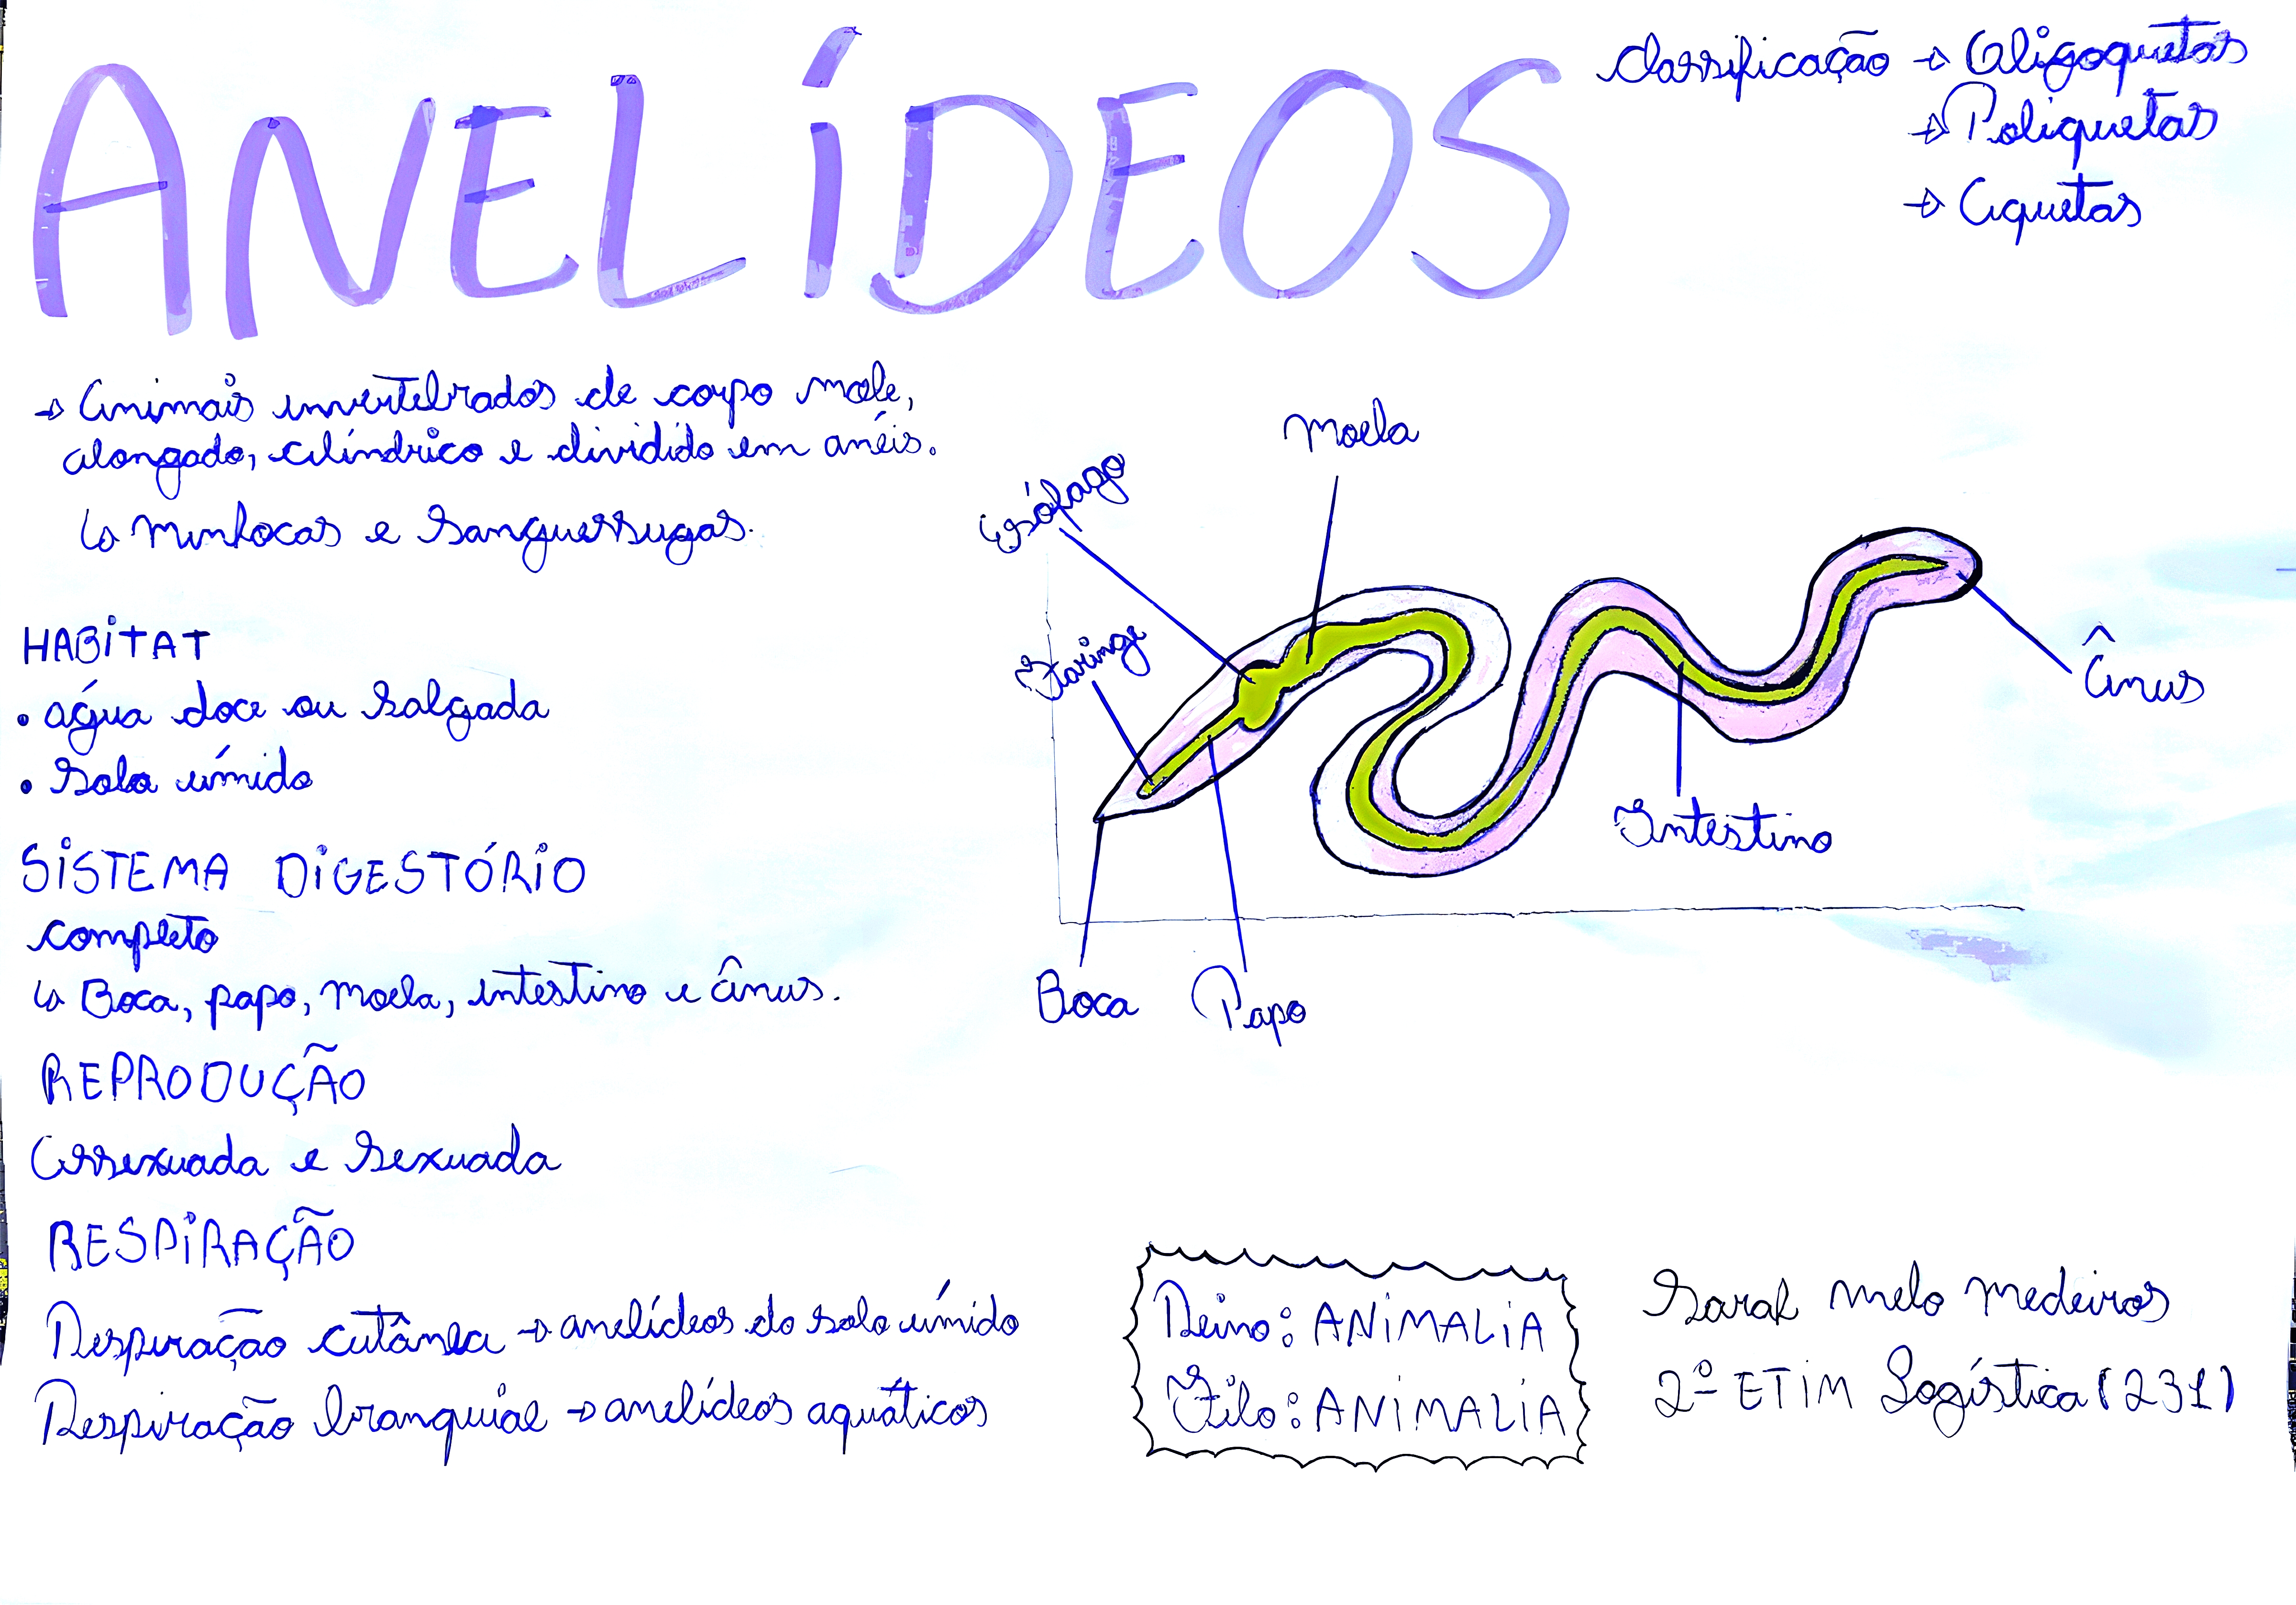 ANELÍDEOS
Classificação → Oligoquetas
→ Poliquetas
→ Aquetas
→ Animais invertebrados de corpo mole,
alongado, cilíndrico e dividido em anéis.
↳ Minhocas e Sanguessugas.
HABITAT
• água doce ou Salgada
• Solo úmido
SISTEMA DIGESTÓRIO
completo
↳ Boca, papo, moela, intestino e ânus.
REPRODUÇÃO
Assexuada e Sexuada
RESPIRAÇÃO
Respiração cutânea → anelídeos do solo úmido
Respiração branquial → anelídeos aquáticos
Moela
Esófago
Faringe
Ânus
Intestino
Boca
Papo
Reino: ANIMALIA
Filo: ANIMALIA
Sarah melo medeiros
2º ETIM Logística (231)